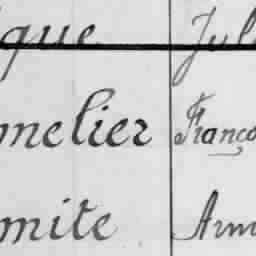 ique Jul
melier Franço
mite Arm